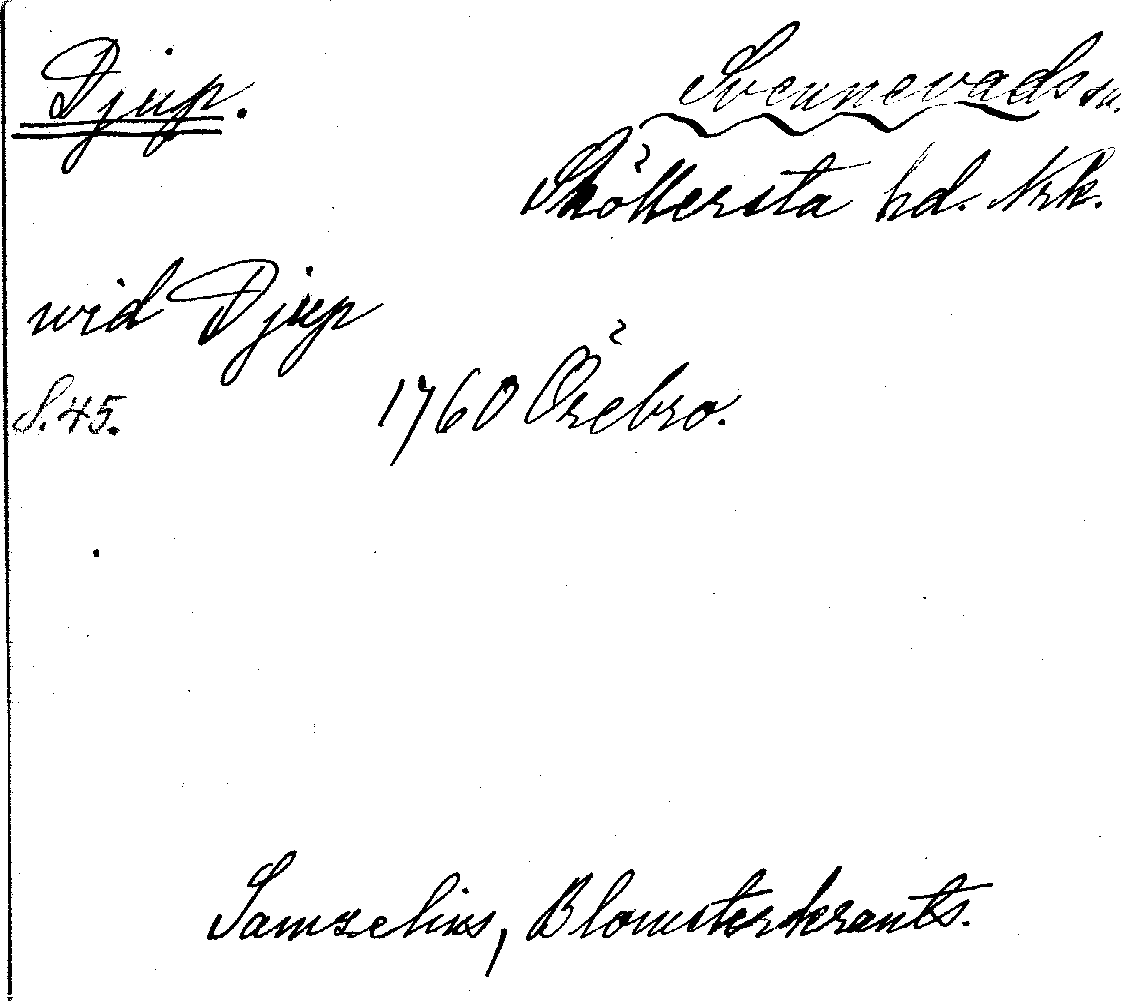 Djup. Svennevads sn.
Sköllersta hd. Nrk.
wid Djup
S. 45. 1760 Örebro.
Samzelius, Blomsterkrants.